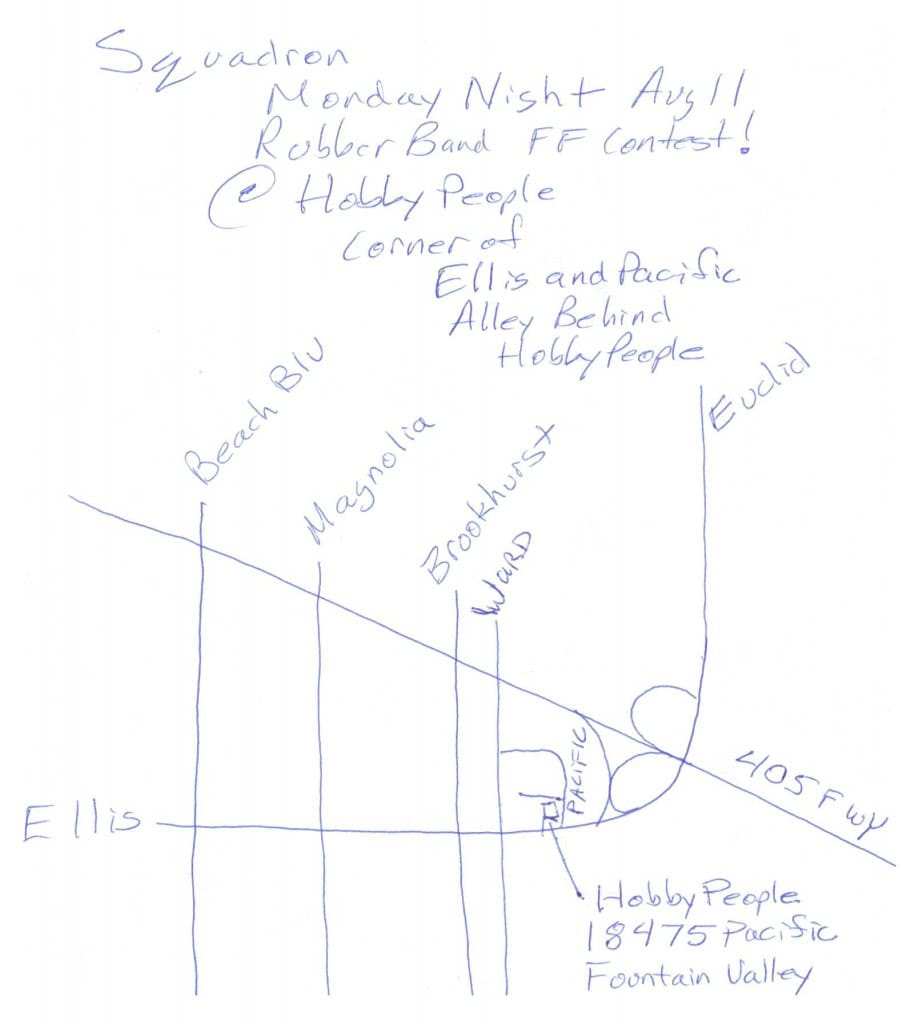 Squadron
Monday Night Aug 11
Rubber Band FF Contest!
@ Hobby People
Corner of
Ellis and Pacific
Alley Behind
Hobby People
Euclid
Beach Blv
Magnolia
Brookhurst
WARD
PACIFIC
405 Fwy
Ellis
Hobby People
18475 Pacific
Fountain Valley